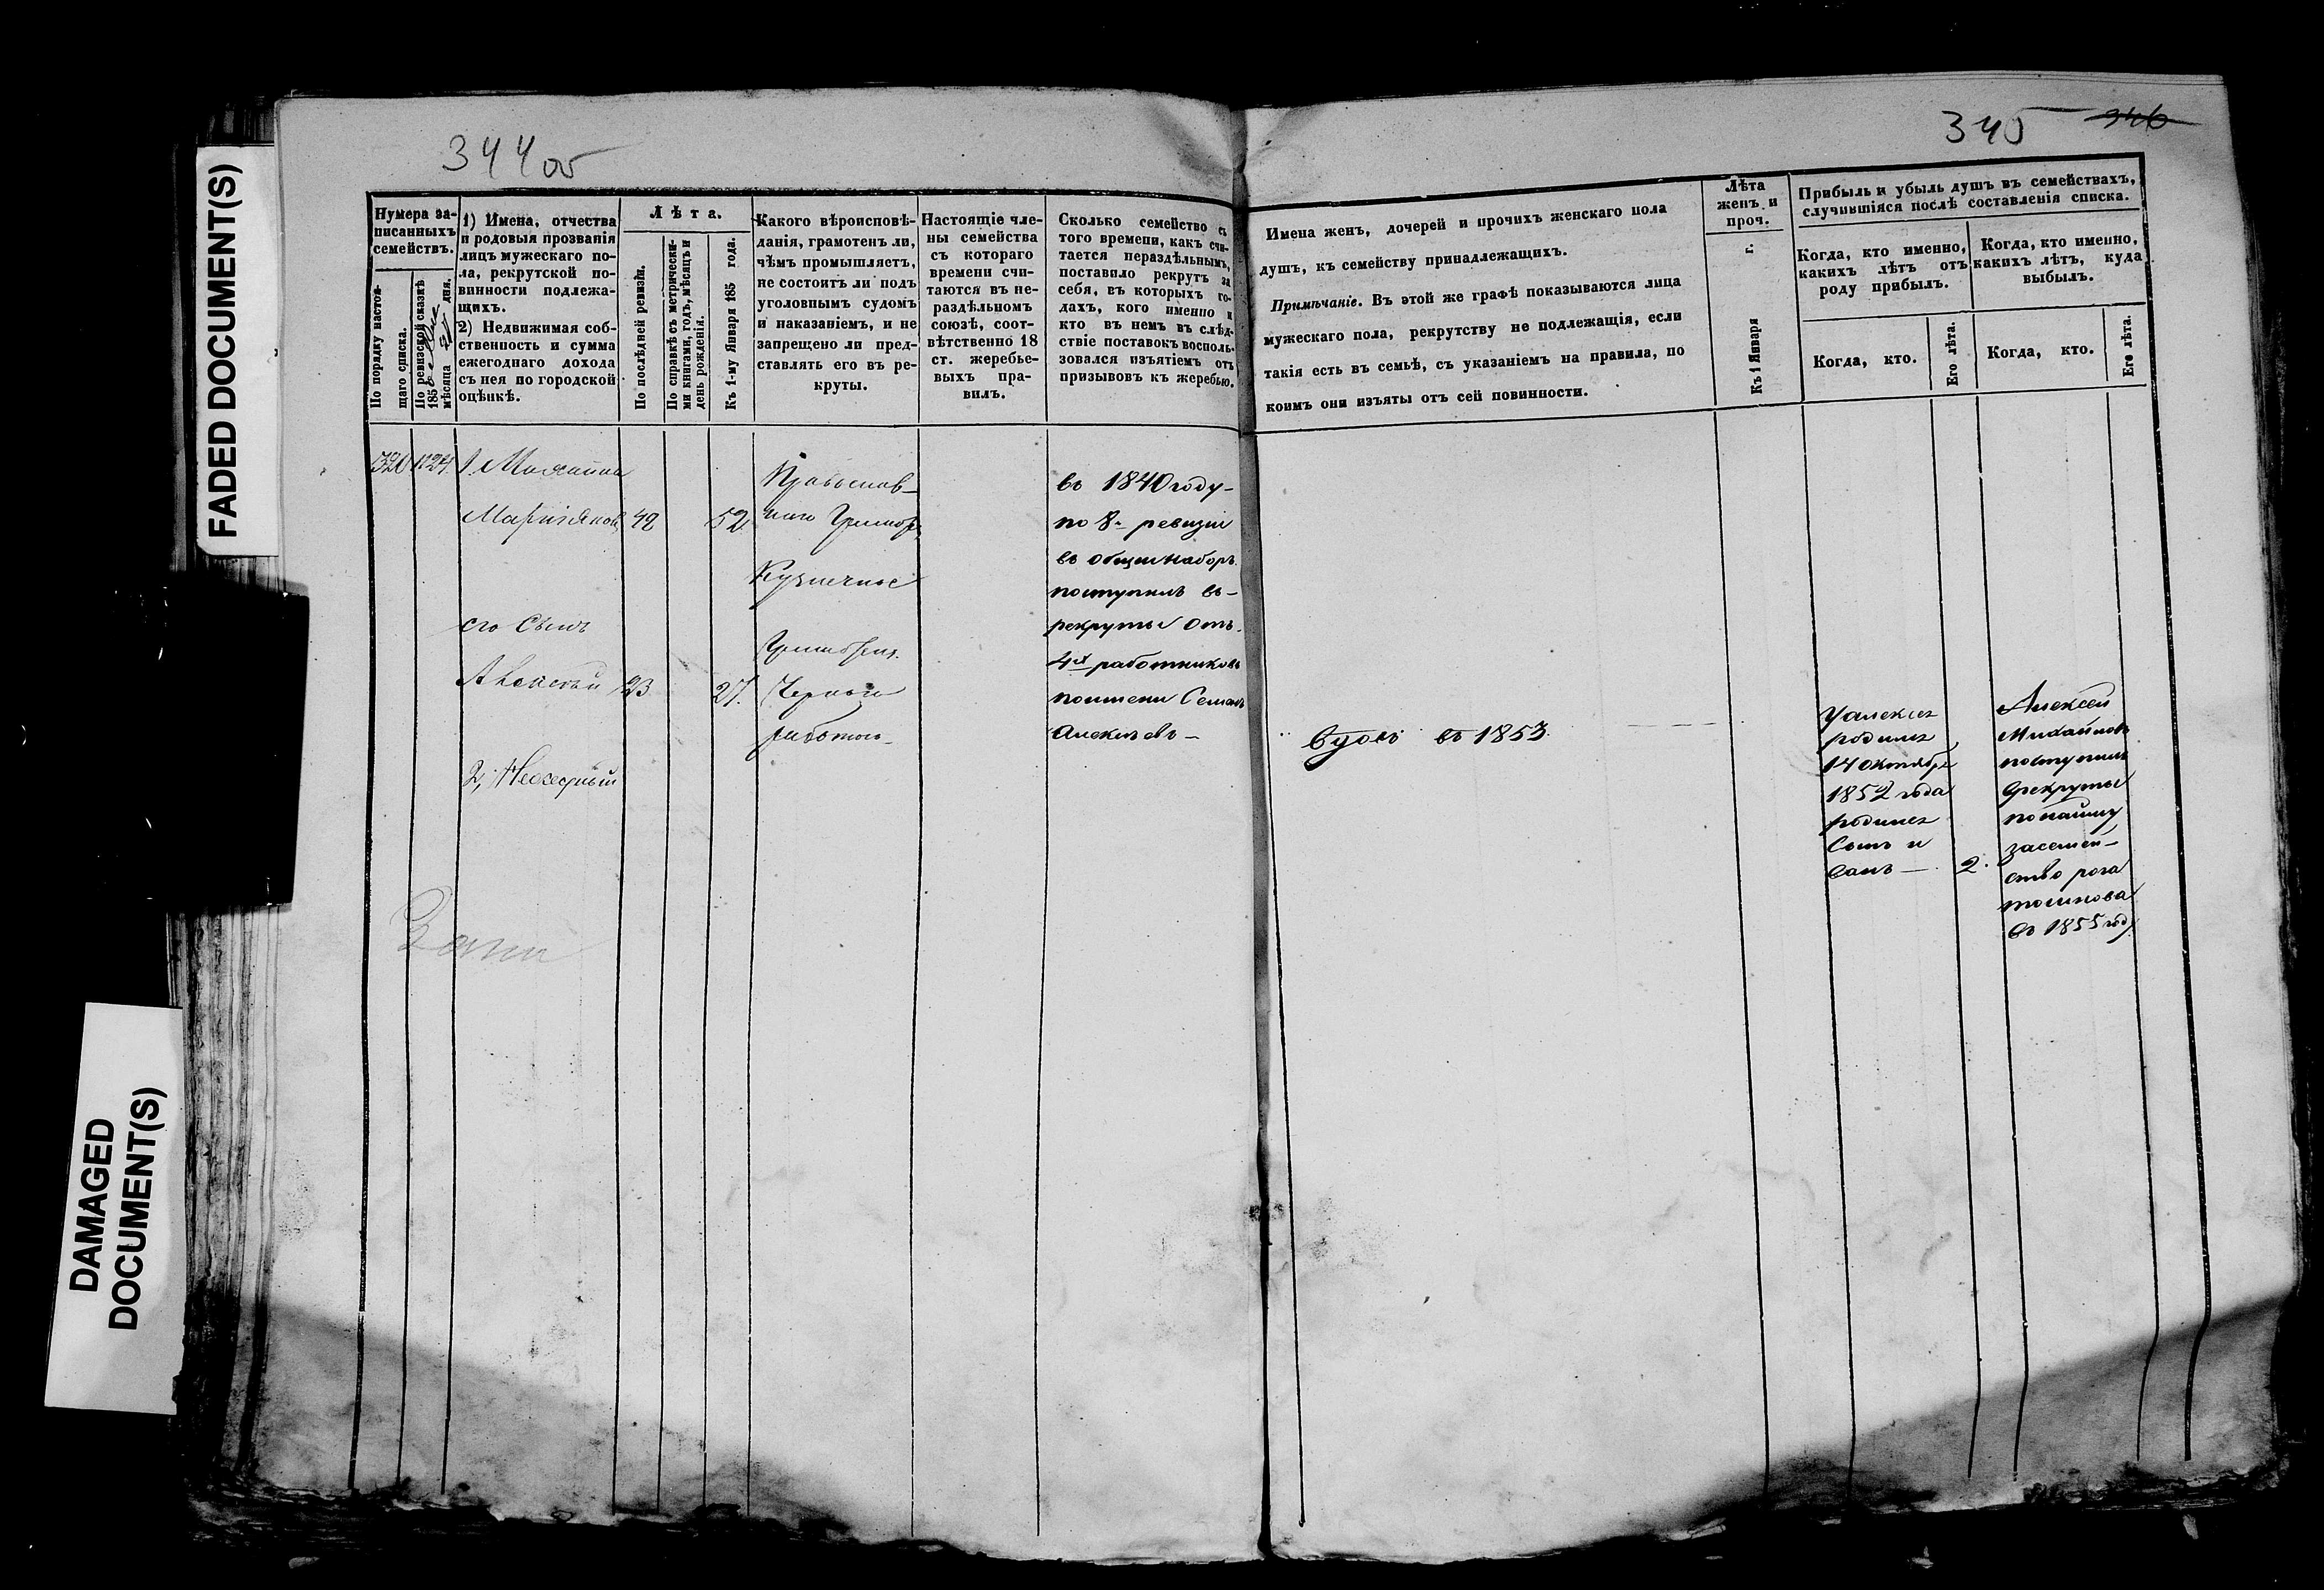 FADED DOCUMENT(S)
DAMAGED
DOCUMENT(S)
344об
Нумера за-
писанныхъ
семействъ.
По порядку настоя-
щаго списка.
По ревизской сказкѣ
185
мѣсяца дня.
1) Имена, отчества
и родовыя прозванія
лицъ мужескаго по-
ла, рекрутской по-
винности подлежа-
щихъ.
2) Недвижимая соб-
ственность и сумма
ежегоднаго дохода
съ нея по городской
оцѣнкѣ.
Лѣта.
По послѣдней ревизіи.
По справкѣ съ метрически-
ми книгами, годъ, мѣсяцъ и
день рожденія.
Къ 1-му Января 185 года.
Какого вѣроисповѣ-
данія, грамотенъ ли,
чѣмъ промышляетъ,
не состоитъ ли подъ
уголовнымъ судомъ
и наказаніемъ, и не
запрещено ли пред-
ставлять его въ ре-
круты.
Настоящіе чле-
ны семейства
съ котораго
времени счи-
таются въ не-
раздѣльномъ
союзѣ, соот-
вѣтственно 18
ст. жеребье-
выхъ пра-
вилъ.
Сколько семейство съ
того времени, какъ счи-
тается нераздѣльнымъ,
поставило рекрутъ за
себя, въ которыхъ го-
дахъ, кого именно и
кто въ немъ въ слѣд-
ствіе поставокъ восполь-
зовался изъятіемъ отъ
призывовъ къ жеребью.
320
1
42
52
его Сынъ
Алексѣй 23
27.
2,
Православ-
Кузнечное
Черной
работою
въ 1840 году
по 8й ревизіи
въ общій наборъ
поступилъ въ
рекруты отъ
4хъ работниковъ
поимени Семенъ
Алексѣевъ
345 346
Имена женъ, дочерей и прочихъ женскаго пола
душъ, къ семейству принадлежащихъ.
Примѣчаніе. Въ этой же графѣ показываются лица
мужескаго пола, рекрутству не подлежащія, если
такія есть въ семьѣ, съ указаніемъ на правила, по
коимъ они изъяты отъ сей повинности.
Лѣта
женъ и
проч.
Къ 1 Января г.
Прибыль и убыль душъ въ семействахъ,
случившіяся послѣ составленія списка.
Когда, кто именно,
какихъ лѣтъ отъ
роду прибылъ.
Когда, кто именно,
какихъ лѣтъ, куда
выбылъ.
Когда, кто.
Его лѣта.
Когда, кто.
Его лѣта.
въ 1853.
14 октября
1852 года
родился
Сынъ и
2.
Алексѣй
Михайловъ
поступилъ
врекруты
понайму
засемей-
ство
въ 1855 год